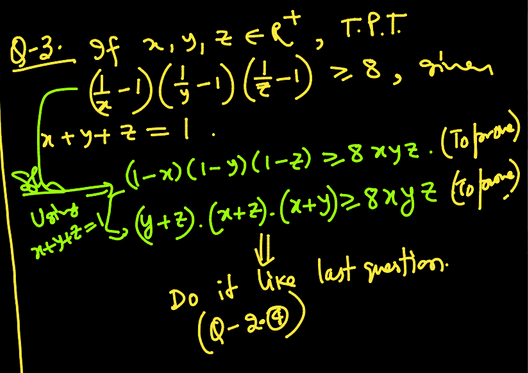 Q-3. If x, y, z ∈ R⁺, T.P.T.
(1/x - 1) (1/y - 1) (1/z - 1) ≥ 8, given
x + y + z = 1.
Soln
(1-x)(1-y)(1-z) ≥ 8xyz. (To prove)
Using
x+y+z=1
(y+z).(x+z).(x+y) ≥ 8xyz (To prove)
⇓
Do it like last question.
(Q-2.④)